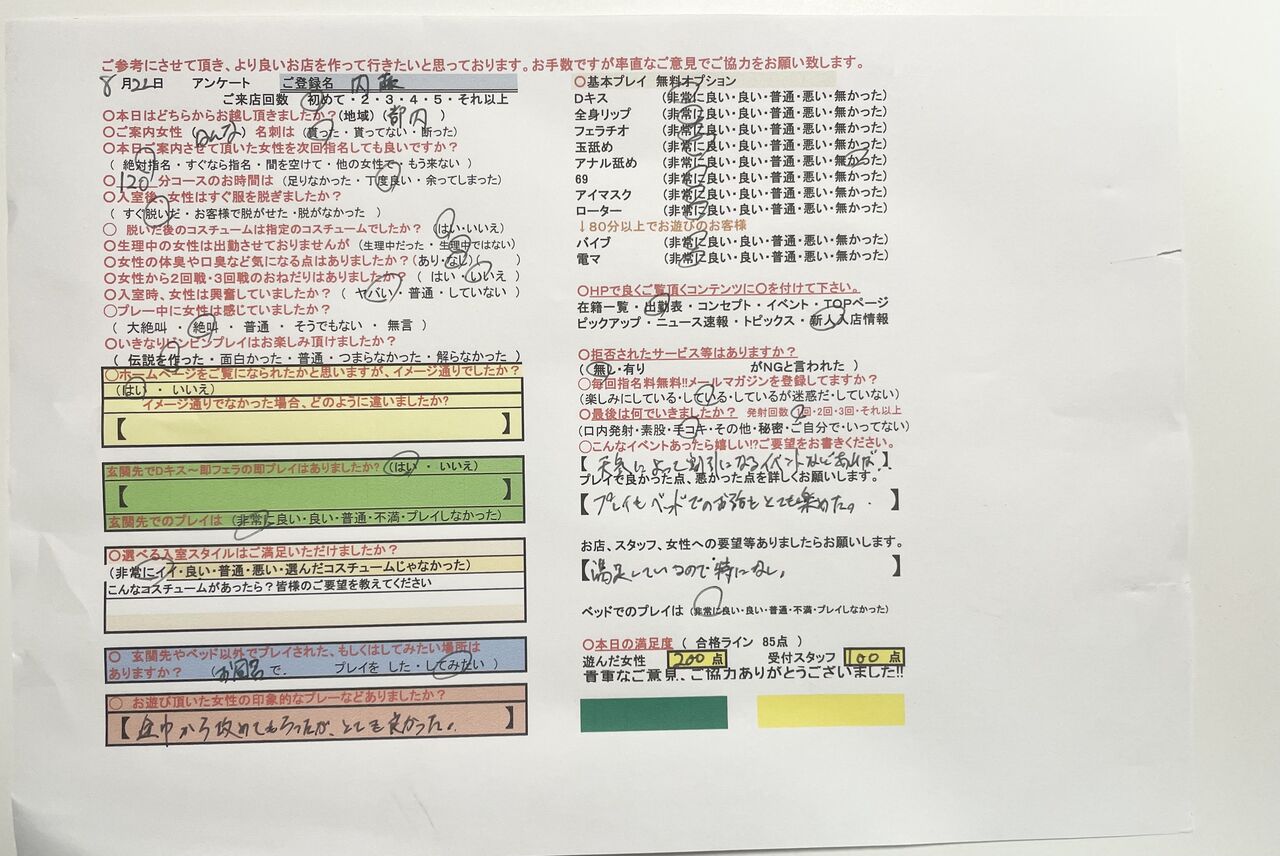 ご参考にさせて頂き、より良いお店を作って行きたいと思っております。お手数ですが率直なご意見でご協力をお願い致します。
8月22日 アンケート ご登録名 内藤
ご来店回数 初めて・2・3・4・5・それ以上
〇本日はどちらからお越し頂きましたか?(地域)(都内)
〇ご案内女性 ( ) 名刺は (貰った・貰ってない・断った)
〇本日ご案内させて頂いた女性を次回指名しても良いですか?
( 絶対指名・すぐなら指名・間を空けて・他の女性で・もう来ない )
〇 120 分コースのお時間は (足りなかった・丁度良い・余ってしまった)
〇入室後、女性はすぐ服を脱ぎましたか?
( すぐ脱いだ・お客様で脱がせた・脱がなかった )
〇 脱いだ後のコスチュームは指定のコスチュームでしたか? (はい・いいえ)
〇生理中の女性は出勤させておりませんが (生理中だった・生理中ではない)
〇女性の体臭や口臭など気になる点はありましたか?(あり・なし )
〇女性から2回戦・3回戦のおねだりはありましたか? ( はい・いいえ )
〇入室時、女性は興奮していましたか? ( ヤバい・普通・していない )
〇プレー中に女性は感じていましたか?
( 大絶叫・絶叫・ 普通 ・ そうでもない ・ 無言 )
〇いきなりビンビンプレイはお楽しみ頂けましたか?
( 伝説を作った・面白かった・普通・つまらなかった・解らなかった )
〇ホームページをご覧になられたかと思いますが、イメージ通りでしたか?
(はい ・ いいえ)
イメージ通りでなかった場合、どのように違いましたか?
【 】
玄関先でDキス～即フェラの即プレイはありましたか? (はい ・ いいえ)
【 】
玄関先でのプレイは (非常に良い・良い・普通・不満・プレイしなかった)
〇選べる入室スタイルはご満足いただけましたか?
(非常にイイ・良い・普通・悪い・選んだコスチュームじゃなかった)
こんなコスチュームがあったら?皆様のご要望を教えてください
〇 玄関先やベッド以外でプレイされた、もしくはしてみたい場所は
ありますか? (お風呂で. プレイを した・してみたい )
〇 お遊び頂いた女性の印象的なプレーなどありましたか?
【途中から攻めてもらったが、とても良かった。 】
〇基本プレイ 無料オプション
Dキス (非常に良い・良い・普通・悪い・無かった)
全身リップ (非常に良い・良い・普通・悪い・無かった)
フェラチオ (非常に良い・良い・普通・悪い・無かった)
玉舐め (非常に良い・良い・普通・悪い・無かった)
アナル舐め (非常に良い・良い・普通・悪い・無かった)
69 (非常に良い・良い・普通・悪い・無かった)
アイマスク (非常に良い・良い・普通・悪い・無かった)
ローター (非常に良い・良い・普通・悪い・無かった)
↓80分以上でお遊びのお客様
バイブ (非常に良い・良い・普通・悪い・無かった)
電マ (非常に良い・良い・普通・悪い・無かった)
〇HPで良くご覧頂くコンテンツに〇を付けて下さい。
在籍一覧・出勤表・コンセプト・イベント・TOPページ
ピックアップ・ニュース速報・トピックス・新人入店情報
〇拒否されたサービス等はありますか?
( 無し・有り がNGと言われた )
〇毎回指名料無料!!メールマガジンを登録してますか?
(楽しみにしている・している・しているが迷惑だ・していない)
〇最後は何でいきましたか? 発射回数 1回・2回・3回・それ以上
(口内発射・素股・手コキ・その他・秘密・ご自分で・いってない)
〇こんなイベントあったら嬉しい!?ご要望をお書きください。
【天気によって割引になるイベントなどあれば 】
プレイで良かった点、悪かった点を詳しくお願いします。
【プレイもベッドでのお話もとても楽めた。 】
お店、スタッフ、女性への要望等ありましたらお願いします。
【満足しているので特になし。 】
ベッドでのプレイは (非常に良い・良い・普通・不満・プレイしなかった)
〇本日の満足度 ( 合格ライン 85点 )
遊んだ女性 200 点 受付スタッフ 100 点
貴重なご意見、ご協力ありがとうございました!!